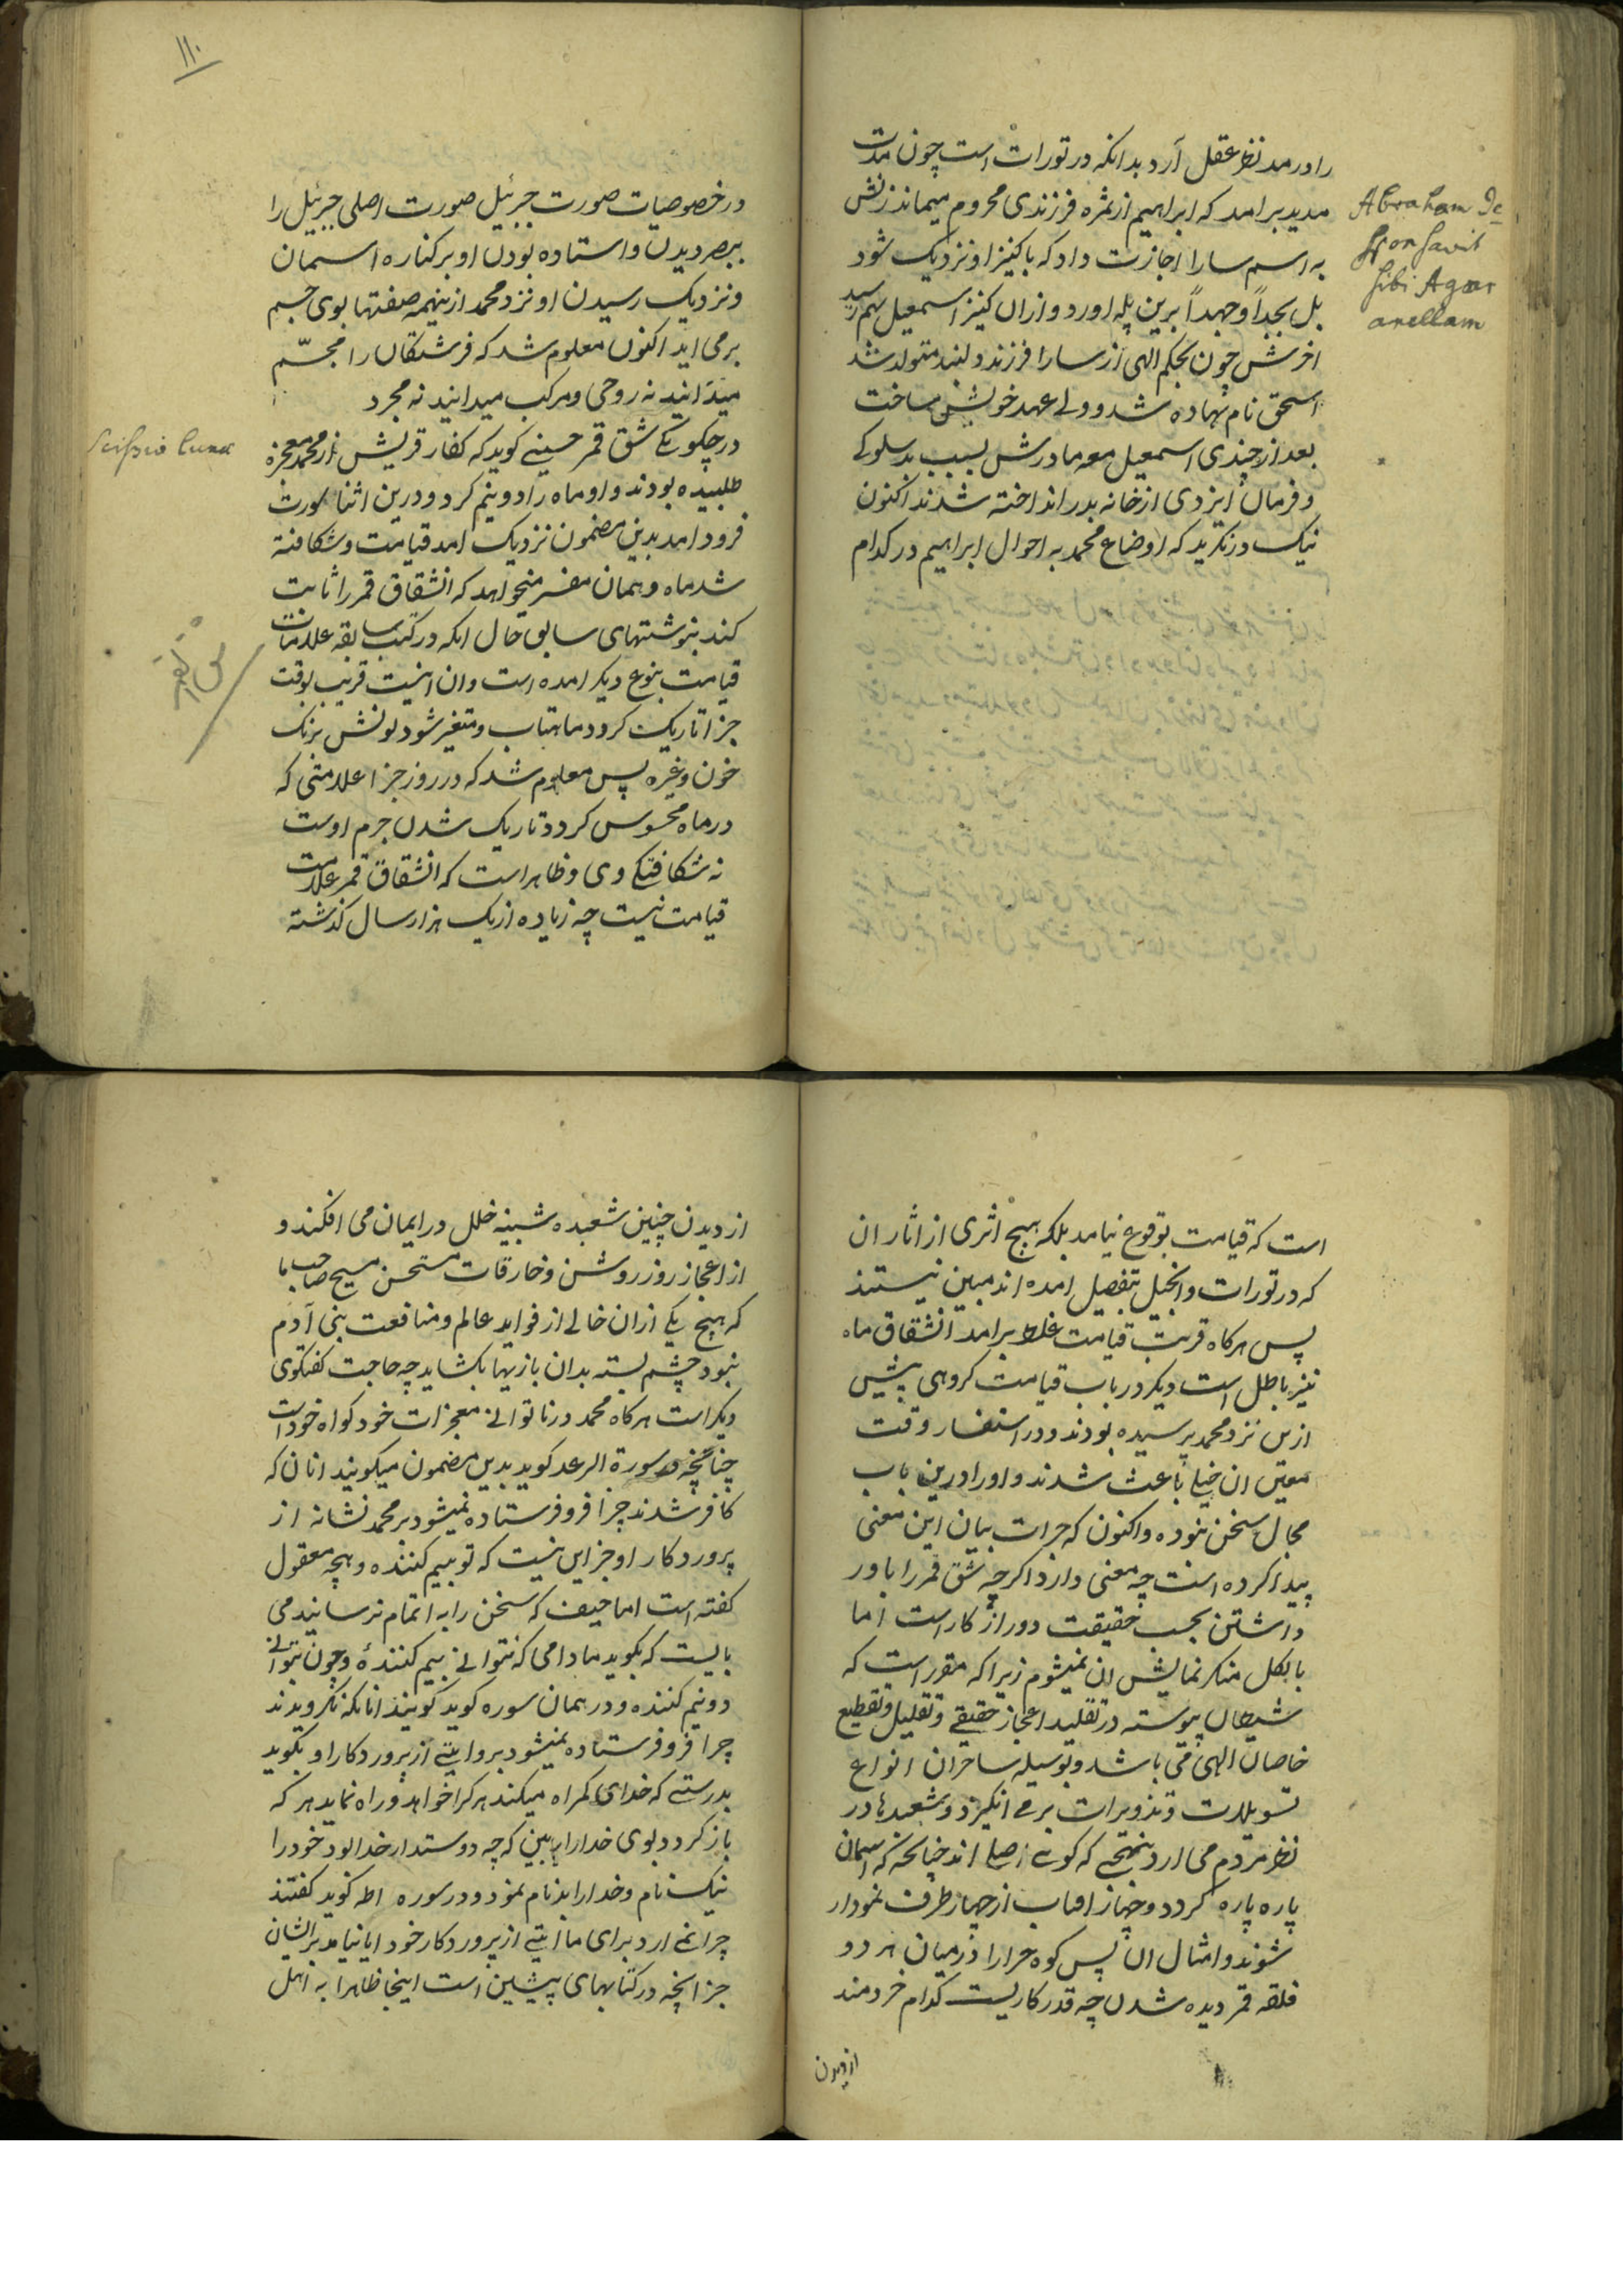 را در مد نظر عقل آرد بدانکه در تورات است چون مدت
مدید برامد که ابراهیم از ثمره فرزندی محروم میماند زنش
به اسم سارا اجازت داد که با کنیز او نزدیک شود
بل بجداً و جهداً برین پله اورد و ازان کنیز اسمعیل بهم رسید
اخرش چون بحکم الهی از سارا فرزند دلبند متولد شد
اسحق نام نهاده شد و ولی عهد خویش ساخت
بعد از چندی اسمعیل معه مادرش بسبب بد سلوکی
و فرمان ایزدی از خانه بدر انداخته شدند اکنون
نیک در نکرید که اوضاع محمد به احوال ابراهیم در کدام
Abraham De
sponsavit
sibi Agar
ancllam
۱۱۰
در خصوصیات صورت جبرئیل صورت اصلی جبرئیل را
ببصر دیدن و استاده بودن او بر کناره اسمان
و نزدیک رسیدن او نزد محمد ازینهمه صفتها بوی جسم
بر می اید اکنون معلوم شد که فرشتکان را مجسّم
میدانید نه روحی و مرکب میدانید نه مجرد
در چکونکی شق قمر حسینی کوید که کفار قریش از محمد معجزه
طلبیده بودند و او ماه را دو نیم کرد و درین اثنا سورت
فرود امد بدین مضمون نزدیک امد قیامت و شکافته
شد ماه و همان مفسر میخواهد که انشقاق قمر را ثابت
کند بنوشتهای سابق حال انکه در کتب سابقه علامات
قیامت بنوع دیکر امده است و ان اینست قریب بوقت
جزا تاریک کردد ماهتاب و متغیر شود لونش برنک
خون و غیره پس معلوم شد که در روز جزا علامتی که
در ماه محسوس کردد تاریک شدن جرم اوست
نه شکافتکی وی و ظاهر است که انشقاق قمر علامت
قیامت نیست چه زیاده از یک هزار سال کذشته
Scissio Lunæ
شق القمر
است که قیامت بوقوع نیامد بلکه هیچ اثری از اثار ان
که در تورات و انجیل بتفصیل امده اند مبین نیستند
پس هرکاه قربت قیامت غلط برامد انشقاق ماه
نیز باطل است دیکر در باب قیامت کروهی پیش
ازین نزد محمد پرسیده بودند و در استفسار وقت
معین ان خیلی باعث شدند و او را درین باب
مجال سخن نبوده و اکنون که جرات بیان این معنی
پیدا کرده است چه معنی دارد اکرچه شق قمر را باور
داشتن بحسب حقیقت دور از کار است اما
بالکل منکر نمایش ان نمیشوم زیرا که مقرر است که
شیطان پیوسته در تقلید اعجاز حقیقی و تقلیل و تقطیع
خاصان الهی می باشد و بوسیله ساحران انواع
تسویلات و تذویرات بر می انکیزد و شعبدها در
نظر مردم می ارد بنهجی که کویی اصلی اند چنانچه که اسمان
پاره پاره کردد و چهار افتاب از چهار طرف نمودار
شوند و امثال ان پس کوه حرا را در میان هر دو
فلقه قمر دیده شدن چه قدر کاریست کدام خردمند
از دیدن
از دیدن چنین شعبده شبینه خلل در ایمان می افکند و
از اعجاز روز روشن و خارقات مستحسن مسیح صاحب ما
که هیچ یکی ازان خالی از فواید عالم و منافعت بنی آدم
نبود چشم بسته بدان بازیها بکشاید چه حاجت کفتکوی
دیکر است هرکاه محمد در ناتوانی معجزات خود کواه خود است
چنانچه در سورة الرعد کوید بدین مضمون میکویند انان که
کافر شدند چرا فرو فرستاده نمیشود بر محمد نشانه از
پروردکار او جز این نیست که تو بیم کننده و بچه معقول
کفته است اما حیف که سخن را به اتمام نرسانید می
بایست که بکوید مادامی که نتوانی بیم کنندهٔ و چون بتوانی
دو نیم کننده و در همان سوره کوید کویند انانکه نکرویدند
چرا فرو فرستاده نمیشود برو ایتی از پروردکار او بکوید
بدرستی که خدای کمراه میکند هر کرا خواهد و راه نماید هر که
باز کردد بوی خدا را ببین که چه دوستدار خدا بود خود را
نیک نام و خدا را بدنام نمود و در سوره اطه کوید کفتند
چرا نمی ارد برای ما ایتی از پروردکار خود ایا نیامد بر ایشان
جز انچه در کتابهای پیشین است اینجا ظاهرا به اهل